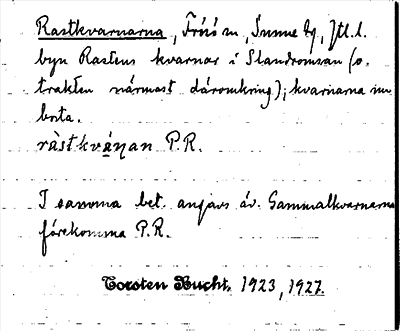 Rastkvarnarna, Frösö sn, Sunne tg, Jtl. l.
byn Rastens kvarnar i Slandromsån (o.
trakten närmast däromkring); kvarnarna nu
borta.
ràstkváṇan P.R.
I samma bet. angavs äv. Gammalkvarnarna
förekomma P.R.
Torsten Bucht. 1923, 1927.